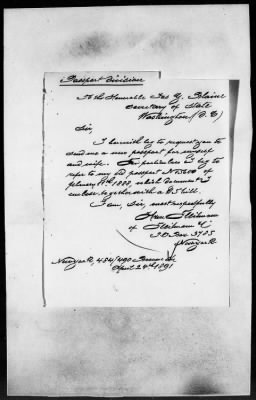 Passport Division
To the Honorable Jas G. Blaine
Secretary of State
Washington (D.C)
Sir,
I herewith beg to request you to
send me a new passport for myself
and wife. For particulars I beg to
refer to my old passport No of
February 1888, which document I
enclose together with a $5 bill.
I am, Sir, most respectfully
of
P.O Box 3755
New York
New York, 484/490 Broome St
April 24th 1891